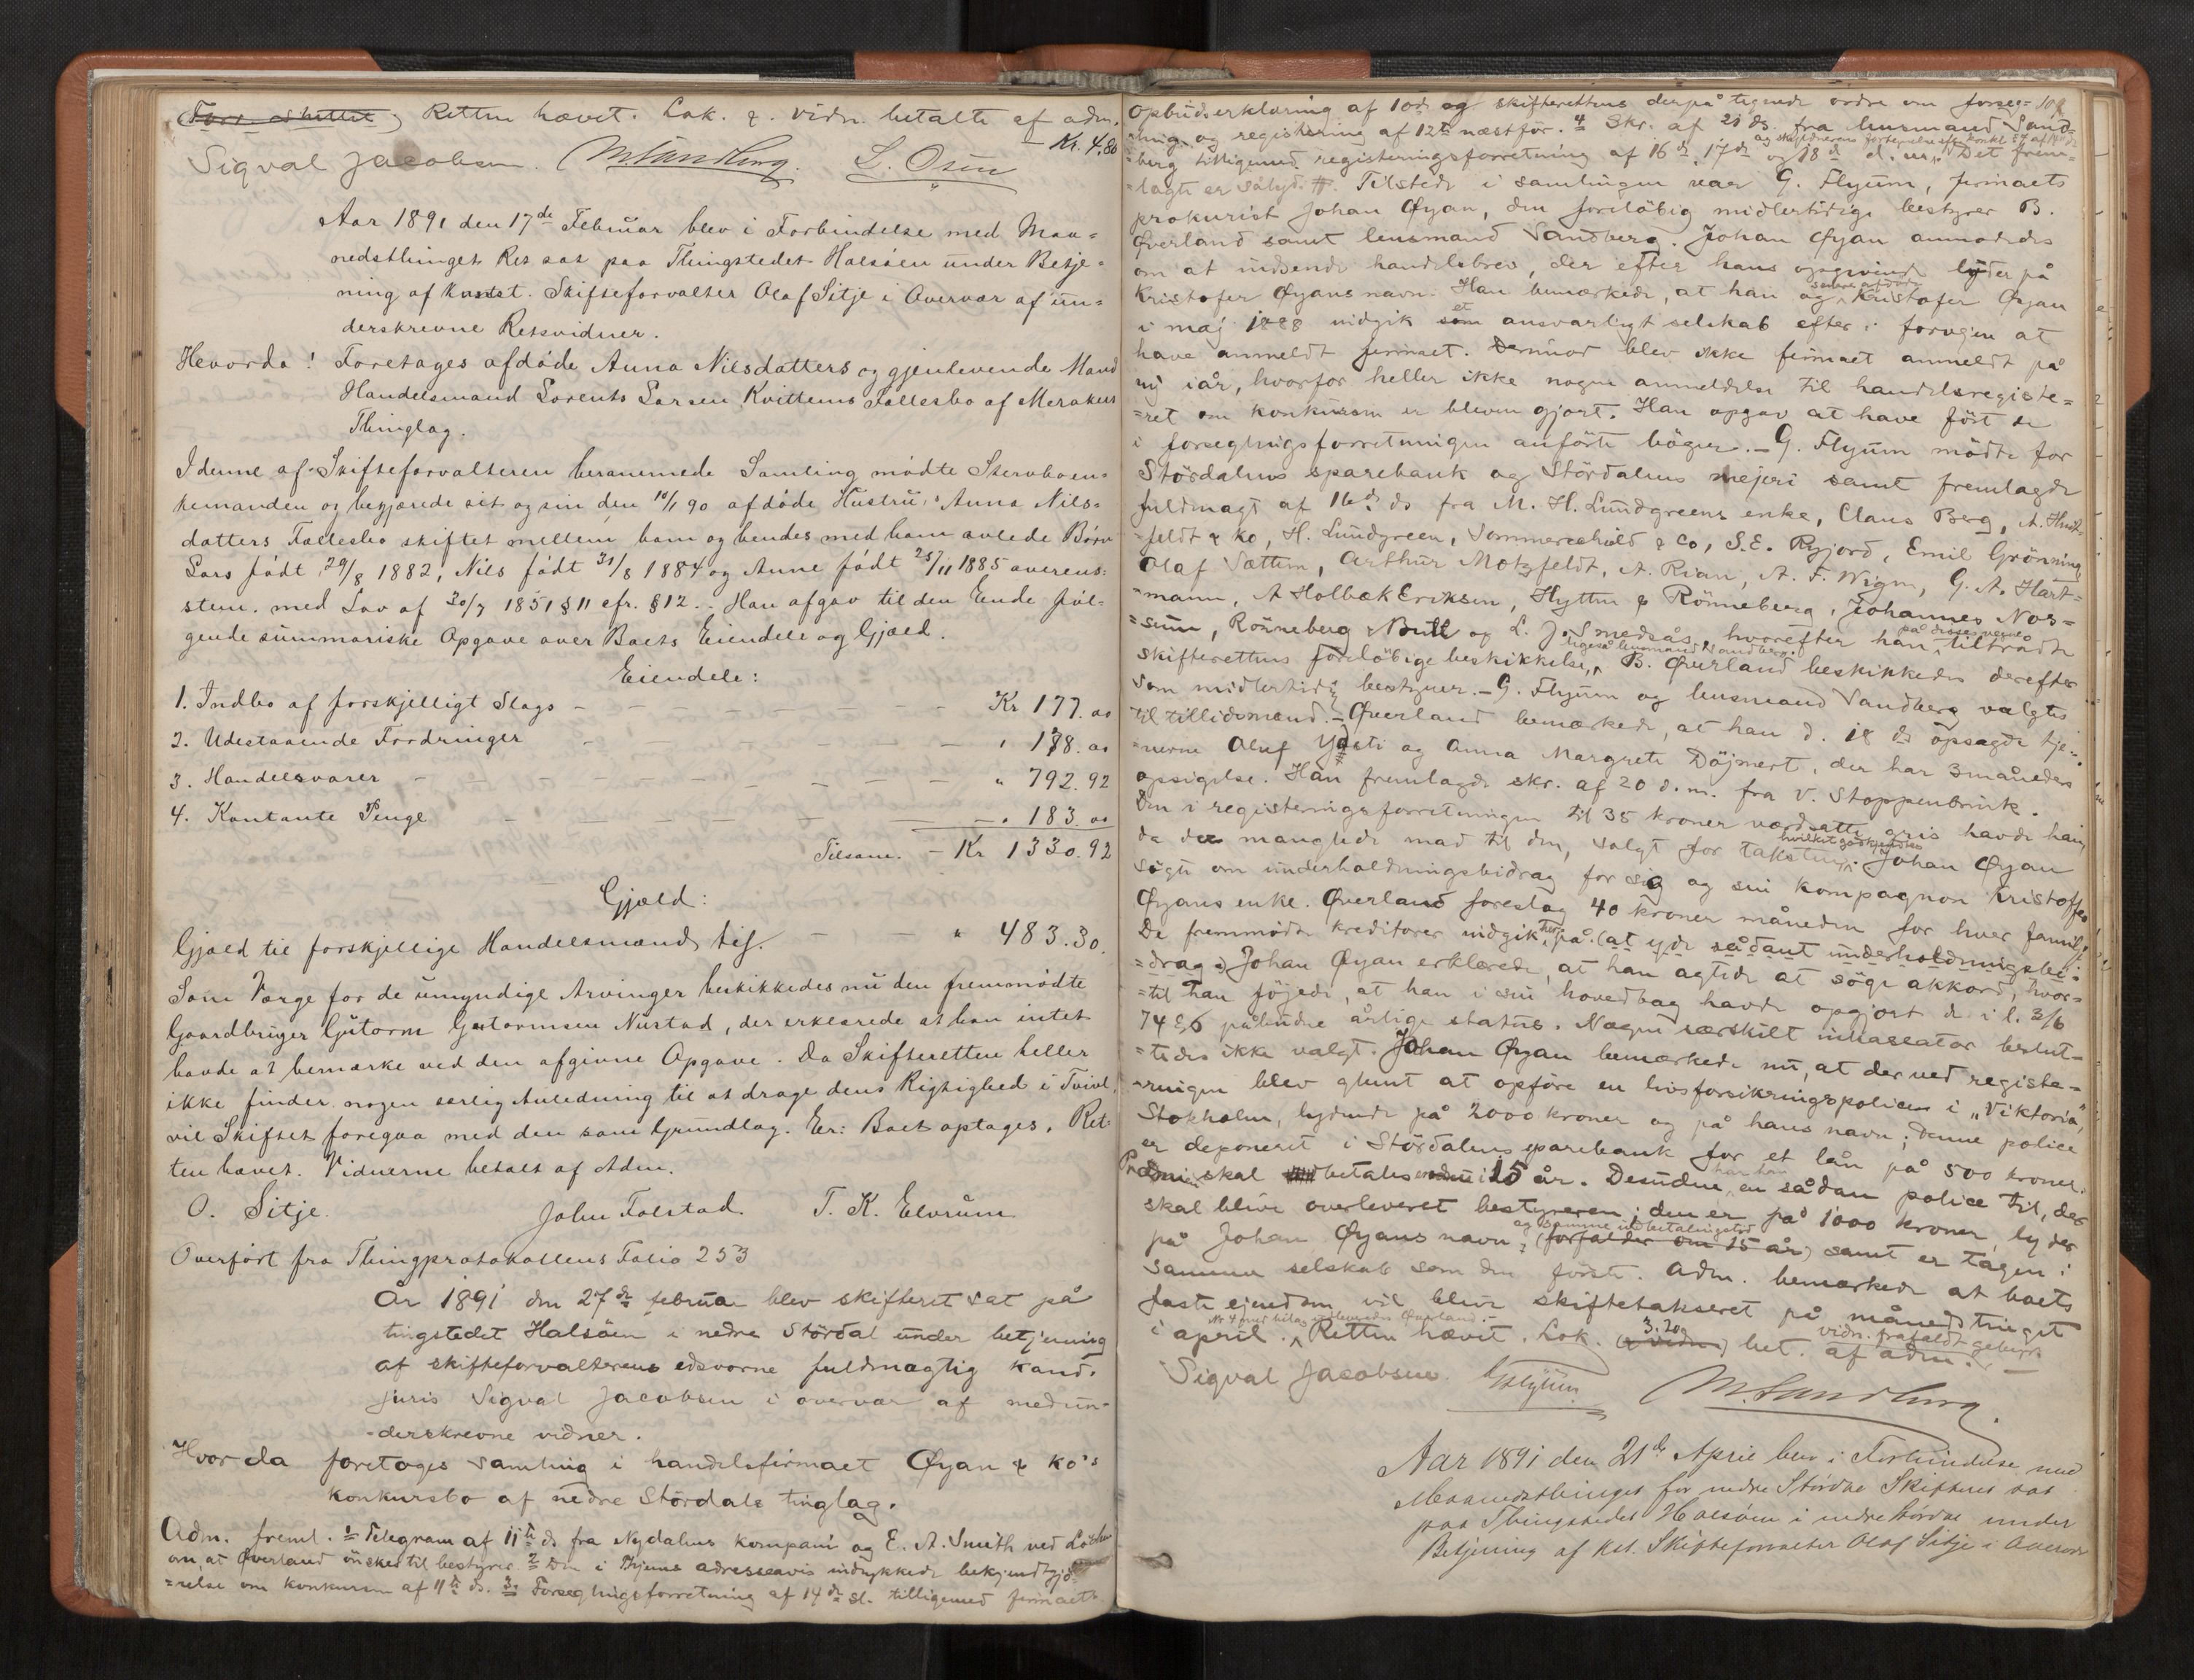 Retten hævet. Lok. & vidn. betalte af adm.
Kr. 4.80
Sigval Jacobsen. M Sandberg. L. Osen
Aar 1891 den 17de Februar blev i Forbindelse med Maa=
nedsthinget Ret sat paa Thingstedet Halsöen under Betje=
ning af Konst. Skifteforvalter Olaf Sitje i Overvær af un=
derskrevne Retsvidner.
Hvorda! Foretages afdöde Anna Nilsdatters og gjenlevende Mand
Handelsmand Lorents Larsen Kvittems Fællesbo af Merakers
Thinglag.
I denne af Skifteforvalteren berammede Samling mödte Stervboen=
kemanden og begjærede sit og sin den 10/1 90 afdöde Hustru: Anna Nils=
datters Fællesbo skiftet mellem ham og hendes med ham avlede Börn
Lars födt 29/8 1882, Nils födt 31/8 1884 og Anne födt 25/11 1885 overens=
stem. med Lov af 30/7 1851 § 11 cfr. § 12. Han afgav til den Ende föl=
gende summariske Opgave over Boets Eiendele og Gjæld.
Eiendele:
1. Indbo af forskjelligt Slags - - - Kr 177.00
2. Udestaaende Fordringer - - - " 178.00
3. Handelsvarer - - - " 792.92
4. Kontante Penge - - - " 183.00
Tilsam. - Kr 1330.92
Gjæld:
Gjæld til forskjellige Handelsmænd tils. - - " 483.30.
Som Værge for de umyndige Arvinger beskikkedes nu den fremmödte
Gaardbruger Gutorm Gutormsen Nustad, der erklærede at han intet
havde at bemærke ved den afgivne Opgave. Da Skifteretten heller
ikke finder nogen særlig Anledning til at drage dens Rigtighed i Tvivl,
vil Skiftet foregaa med den som Grundlag. Er: Boet optages. Ret=
ten hævet. Vidnerne betalt af Adm.
O. Sitje. John Folstad. T. K. Elvrum
Overfört fra Thingprotokollens Folio 253
År 1891 den 27de februar blev skifteret sat på
tingstedet Halsöen i nedre Stördal under betjening
af skifteforvalterens edsvorne fuldmægtig kand.
juris Sigval Jacobsen i overvær af medun=
=derskrevne vidner.
Hvorda foretoges samling i handelsfirmaet Øyan & ko's
konkursbo af nedre Stördals tinglag.
Adm. freml. 1 Telegram af 11te ds. fra Nydalens kompani og E. A. Smith ved
om, at Øverland önskes til bestyrer 2 Den i Thjems adresseavis indrykkede bekjendtgjö=
=relse om konkursen af 11te ds. 3 Forseglingsforretning af 14de sl. tilligemed firmaets
opbudserklæring af 10de og skifterettens derpå tegnede ordre om forseg= 108
ling og registering af 12te næstför. 4 Skr. af 21 ds. fra lensmand Sand=
=berg tilligemed registeringsforretning af 16de, 17de og 18de d. m. Det frem=
=lagte er sålyd. #. Tilstede i samlingen var G. Flyum, firmaets
prokurist Johan Øyan, den foreløbig midlertidige bestyrer B.
Øverland samt lensmand Sandberg. Johan Øyan anmodedes
om at indsende handelsbrev, der efter hans opgivende lyder på
Kristofer Øyans navn. Han bemærkede, at han og Kristofer Øyan
i maj 1888 indgik et ansvarligt selskab efter i forvejen at
have anmeldt firmaet. Derimod blev ikke firmaet anmeldt på
ny iår, hvorfor heller ikke nogen anmeldelse til handelsregiste=
=ret om konkursen er bleven gjort. Han opgav at have fört de
i forseglingsforretningen anförte böger. - G. Flyum mödte for
Stördalens sparebank og Stördalens mejeri samt fremlagde
fuldmagt af 16de ds fra M. H. Lundgreens enke, Claus Berg, A. Huit=
=feldt & ko, H. Lundgreen, Sommerschield & Co, S. E. Ryjord, Emil Grönning
Olaf Sættem, Arthur Motzfeldt, A. Rian, A. F. Wigen, G. A. Hart=
=mann, A Holbæk Eriksen, Hytten & Rönneberg, Johannes Nos=
=sum, Rönneberg & Butt og L. J. Smedsås, hvorefter han på disses vegne tiltrådte
ligeså lensmand Sandberg.
skifterettens foreløbige beskikkelse, B. Øverland beskikkedes derefter
som midlertidig bestyrer. - G. Flyum og lensmand Sandberg valgtes
til tillidsmænd. - Øverland bemærkede, at han d. 18 ds opsagde tje=
=nerne Oluf Ydsti og Anna Margrete Döjmert, der har 3 måneders
opsigelse. Han fremlagde skr. af 20 d.m. fra V. Stoppenbrink.
Den i registeringsforretningen til 35 kroner værdsatte gris havde han,
da der manglede mad til den, solgt for taksten, hvilket godkjendtes. Johan Øyan
sögte om underholdningsbidrag for sig og sin kompagnon Kristoffer
Øyans enke. Øverland foreslog 40 kroner måneden for hver famil.
De fremmödte kreditorer indgik her på (at yde sådant underholdningsbi=
=drag.) Johan Øyan erklærede, at han agtede at söge akkord, hvor=
=til han föjede, at han i sin hovedbog havde opgjort de i l. 3/6
74 § 6 påbudne årlige status. Nogen særskilt inkassator beslut=
=tedes ikke valgt. Johan Øyan bemærkede nu, at der ved registe=
=ringen blev glemt at opføre en livsforsikringspolice i "Viktoria",
Stokholm, lydende på 2000 kroner og på hans navn; denne police
er deponeret i Stördalens sparebank for et lån på 500 kroner.
Præmien skal betales i 15 år. Desuden har han en sådan police til, der
skal blive overleveret bestyreren; den er på 1000 kroner, lyder
på Johan Øyans navn og samme indbetalingstid (forfalder om 15 år) samt er tagen i
samme selskab som den förste. Adm. bemærkede at boets
faste ejendom vil blive skiftetakseret på månedstinget
i april. Retten hævet. Lok. 3.20 (& vidn) bet. af adm. vidn. frafaldt gebyr.
Sigval Jacobsen. GFlyum. M. Sandberg.
Aar 1891 den 21de April blev i Forbindelse med
Maanedsthinget for nedre Stördal Skifteret sat
paa Thingstedet Halsöen i nedre Stördal under
Betjening af Kst. Skifteforvalter Olaf Sitje i Overvær